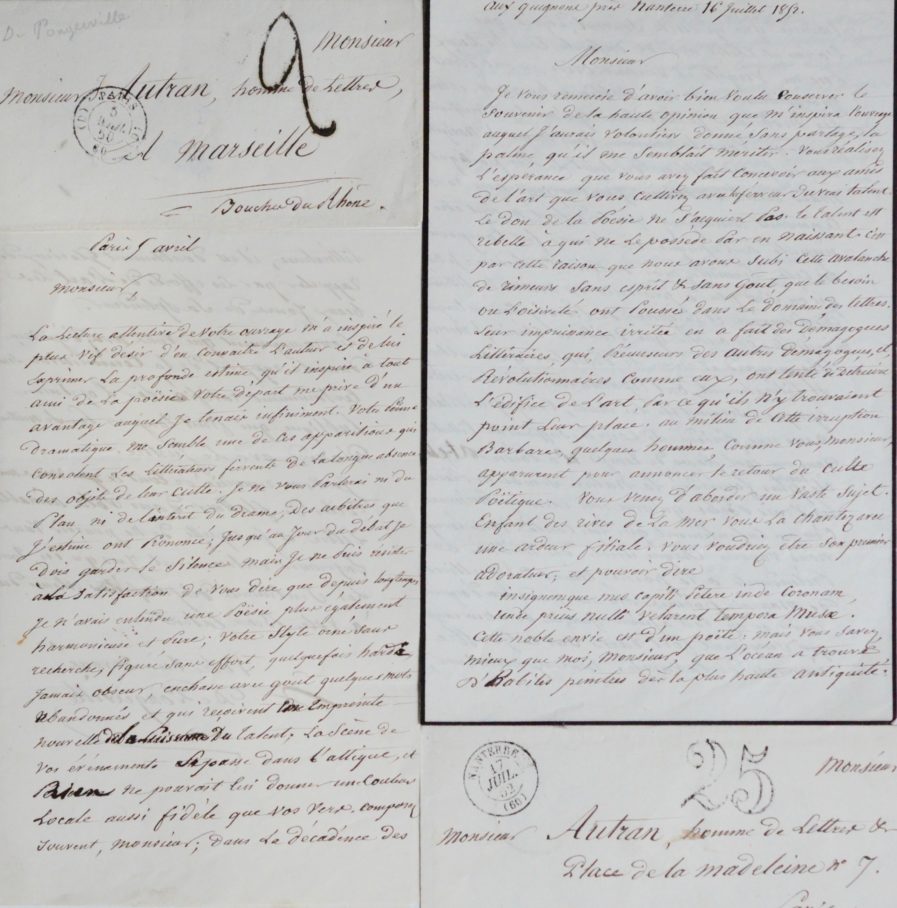 De Pongerville
Monsieur
2
Monsieur Autran, homme de Lettres,
PARIS
à Marseille
Bouches du Rhône.
Paris 5 avril
Monsieur,
La Lecture attentive de votre ouvrage m'a inspiré le
plus vif désir d'en connaître L'auteur et de lui
exprimer La profonde estime qu'il inspire à tout
ami de La poësie. Votre départ me prive d'un
avantage auquel Je tenais infiniment. Votre Poëme
dramatique me semble une de ces apparitions qui
consolent Les Littérateurs fervents de La longue absence
des objets de leur culte. Je ne vous Parlerai ni du
Plan, ni de L'intérêt du drame; des arbitres que
J'estime ont Prononcé; Jusqu'au Jour du débat Je
dois garder Le Silence mais Je ne puis résister
à la Satisfaction de Vous dire que depuis longtemps
Je n'avais entendu une Poësie plus également
harmonieuse et Pure; votre Style orné sans
recherche, figuré sans effort, quelquefois hardi
Jamais obscur, enchasse avec goût quelques mots
abandonnés et qui reçoivent Une Empreinte
nouvelle de la Puissance du talent, La Scène de
vos événements Se passe dans L'attique, et
Rien ne pouvait lui donner une Couleur
Locale aussi fidèle que vos vers. composez
Souvent, Monsieur; dans La décadence des
aux guignons près Nanterre 16 Juillet 1852.
Monsieur
Je vous remercie d'avoir bien voulu conserver le
Souvenir de la haute opinion que m'inspira L'ouvrage
auquel J'aurais volontiers donné Sans partage, la
palme qu'il me Semblait mériter. Vous réalisez
L'espérance que vous avez fait Concevoir aux amis
de L'art que vous Cultivez avec ferveur du vrai talent.
Le don de la Poësie ne S'acquiert Pas. Le talent est
rebelle à qui ne Le possède Par en naissant. C'est
par cette raison que nous avons Subi Cette avalanche
de rimeurs Sans esprit & Sans Goût, que le besoin
ou L'oisiveté ont Poussés dans Le domaine des lettres.
Leur impuissance irritée en a fait des démagogues
Littéraires, qui, Précurseurs des autres démagogues, et
Révolutionnaires Comme eux, ont tenté de détruire
L'édifice de L'art, Par ce qu'ils n'y trouvaient
point Leur place. au milieu de Cette irruption
Barbare, quelques hommes, Comme vous, Monsieur,
apparurent pour annoncer Le retour du Culte
Poëtique. Vous venez d'aborder un Vaste Sujet.
Enfant des rives de La mer vous La Chantez avec
une ardeur filiale, vous voudriez être Son premier
adorateur, et pouvoir dire
insignemque meo capiti petere inde Coronam
Unde prius nulli velarent tempora Musæ.
Cette noble envie est d'un poëte: mais vous Savez,
mieux que moi, Monsieur, que L'océan a trouvé
D'habiles peintres dès la plus haute antiquité.
NANTERRE
17
JUIL.
52
(60)
25
Monsieur
Monsieur Autran, homme de Lettres &
Place de la madeleine n° 7.
Paris